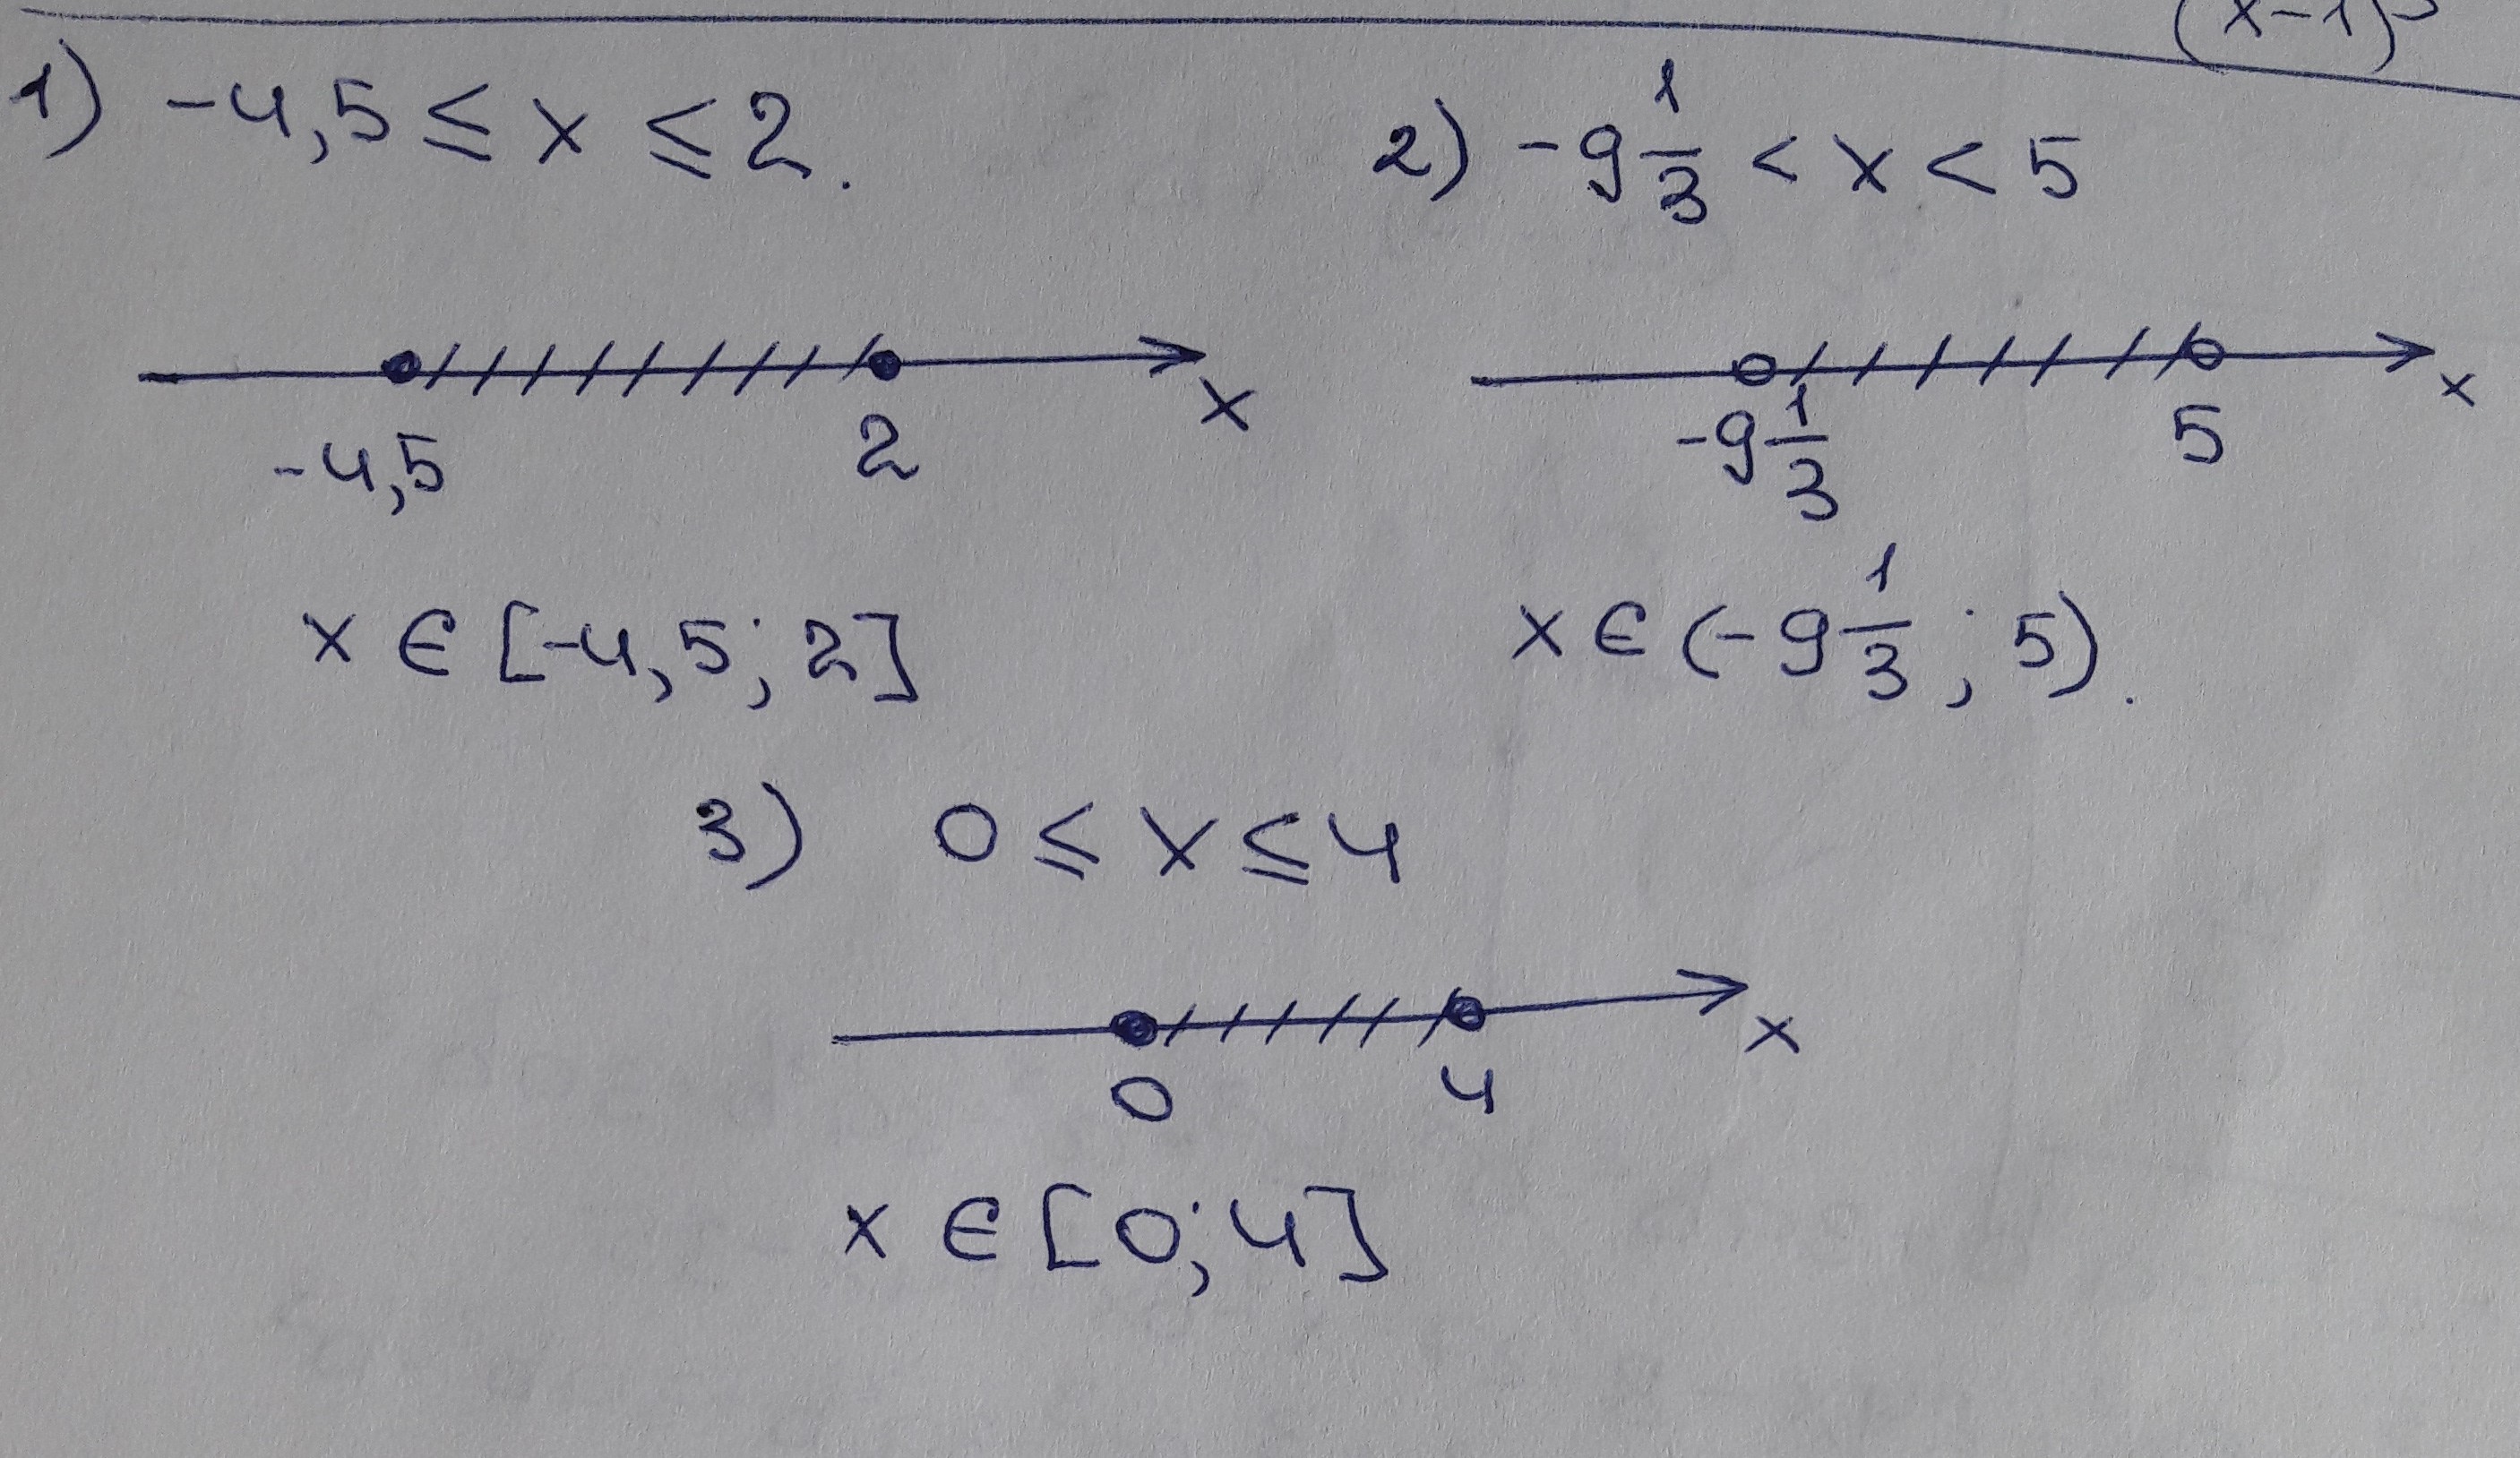 (x-1)
1) -4,5 ≤ x ≤ 2.
-4,5 2 x
x ∈ [-4,5; 2]
2) -9 1/3 < x < 5
-9 1/3 5 x
x ∈ (-9 1/3; 5).
3) 0 ≤ x ≤ 4
0 4 x
x ∈ [0; 4]